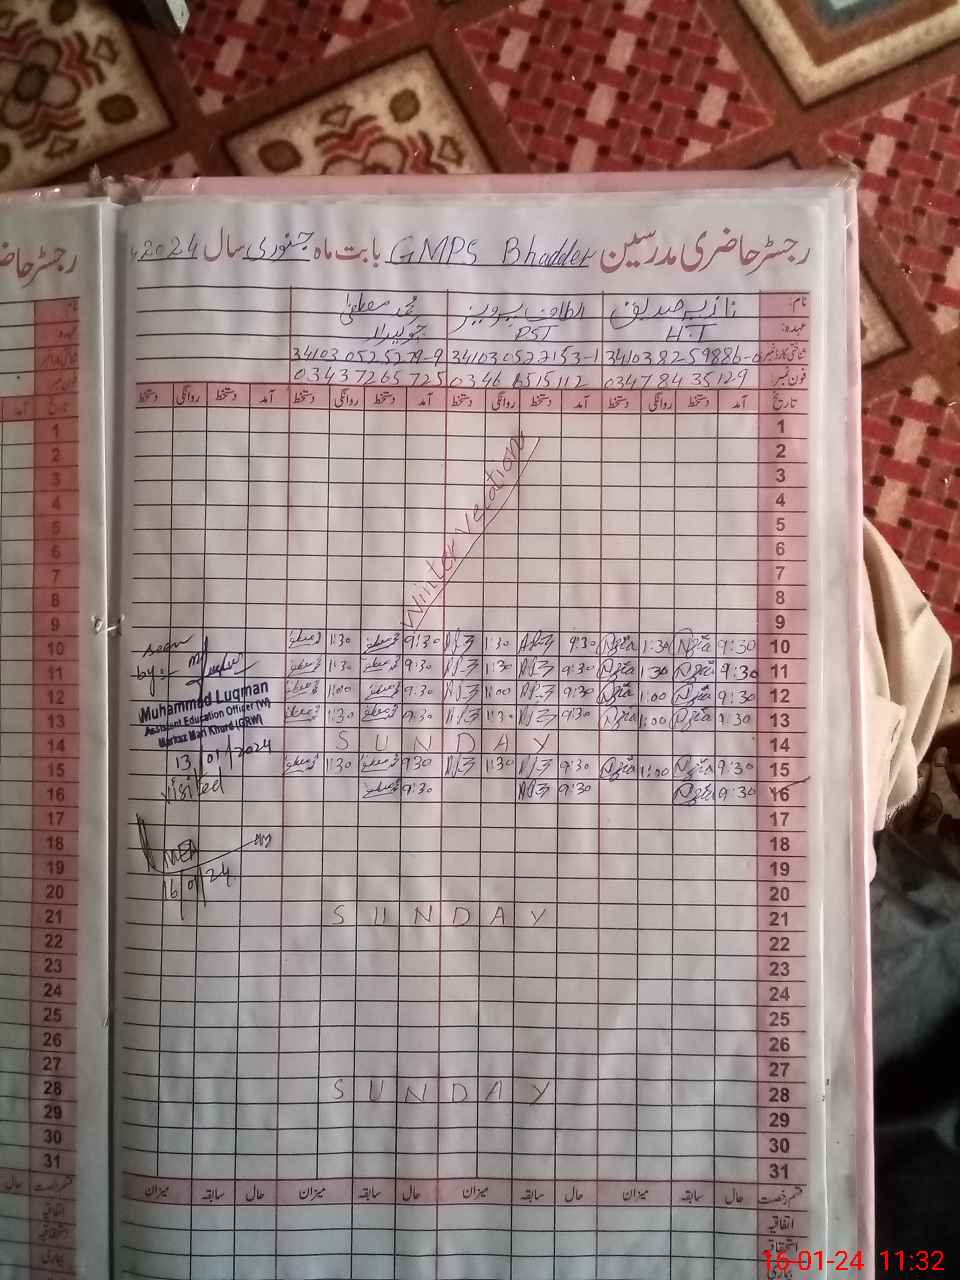 رجسٹر حاضری مدرسین GMPS Bhadder بابت ماہ جنوری سال 2024
نام: نازیہ صدیق الطاف پرویز محمد مصطفیٰ
عہدہ: H.T PST چوکیدار
شناختی کارڈ نمبر 34103 0525279-9
فون نمبر: 0347 84 35129 03437265725
تاریخ آمد دستخط روانگی دستخط آمد دستخط روانگی دستخط آمد دستخط روانگی دستخط آمد دستخط روانگی دستخط
1
2
3
4
5
6
7
8
9
Winter Vecation
10 9:30 1:30 9:30 1:30 9:30 1:30 seen
11 9:30 1:30 9:30 1:30 9:30 1:30 by:
12 9:30 1:00 9:30 1:00 9:30 1:00
Muhammad Luqman
Assistant Education Officer (W)
Markaz Mari Khurd (GRW)
13 9:30 1:30 9:30 1:30
14 SUNDAY
13/01/2024
15 9:30 1:00 9:30 1:30 9:30 1:30
16 9:30 9:30 9:30 visited
17
18
MEA
19
16/01/24
20
21 SUNDAY
22
23
24
25
26
27
28 SUNDAY
29
30
31
قسم رخصت حال سابقہ میزان حال سابقہ میزان حال سابقہ میزان حال سابقہ میزان
اتفاقیہ
استحقاقیہ
بیماری
رجسٹر حاضری
نام:
عہدہ:
تاریخ
1
2
3
4
5
6
7
8
9
10
11
12
13
14
15
16
17
18
19
20
21
22
23
24
25
26
27
28
29
30
31
قسم رخصت حال
اتفاقیہ
استحقاقیہ
بیماری
16-01-24 11:32